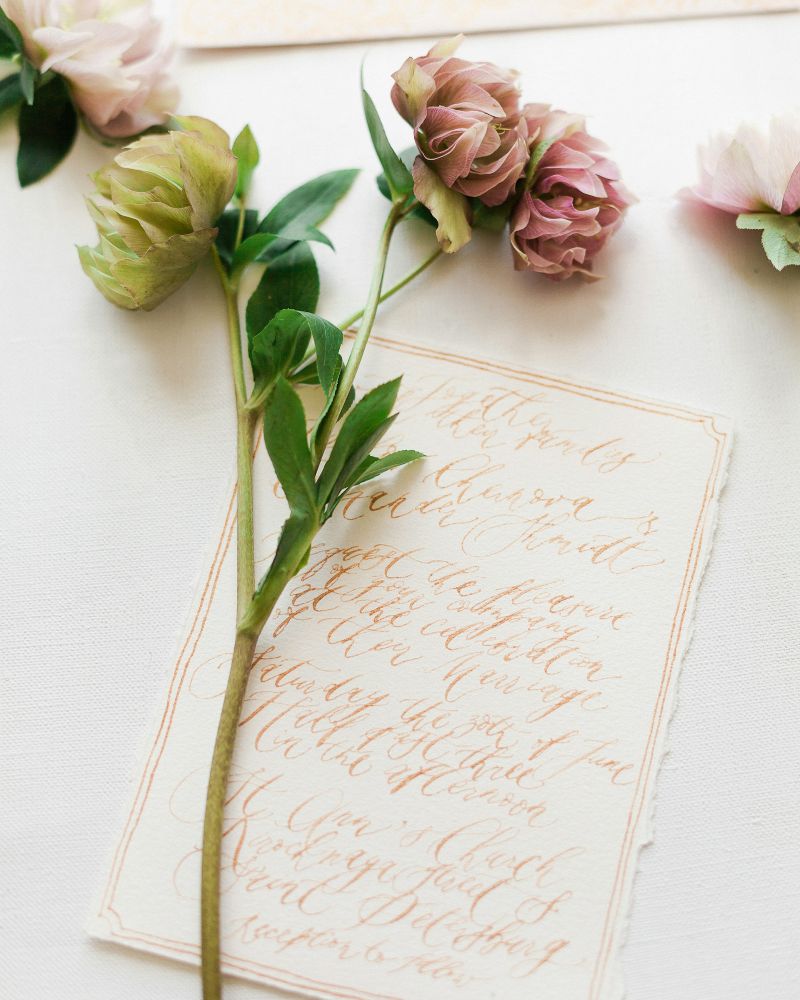 Together
their families
Chernova &
Shmidt
request the pleasure
of your company
at the celebration
of their Marriage
Saturday the 30th of June
Half past three
in the afternoon
St Ann's Church
Kirochnaya Street 8
Saint Petersburg
Reception to follow